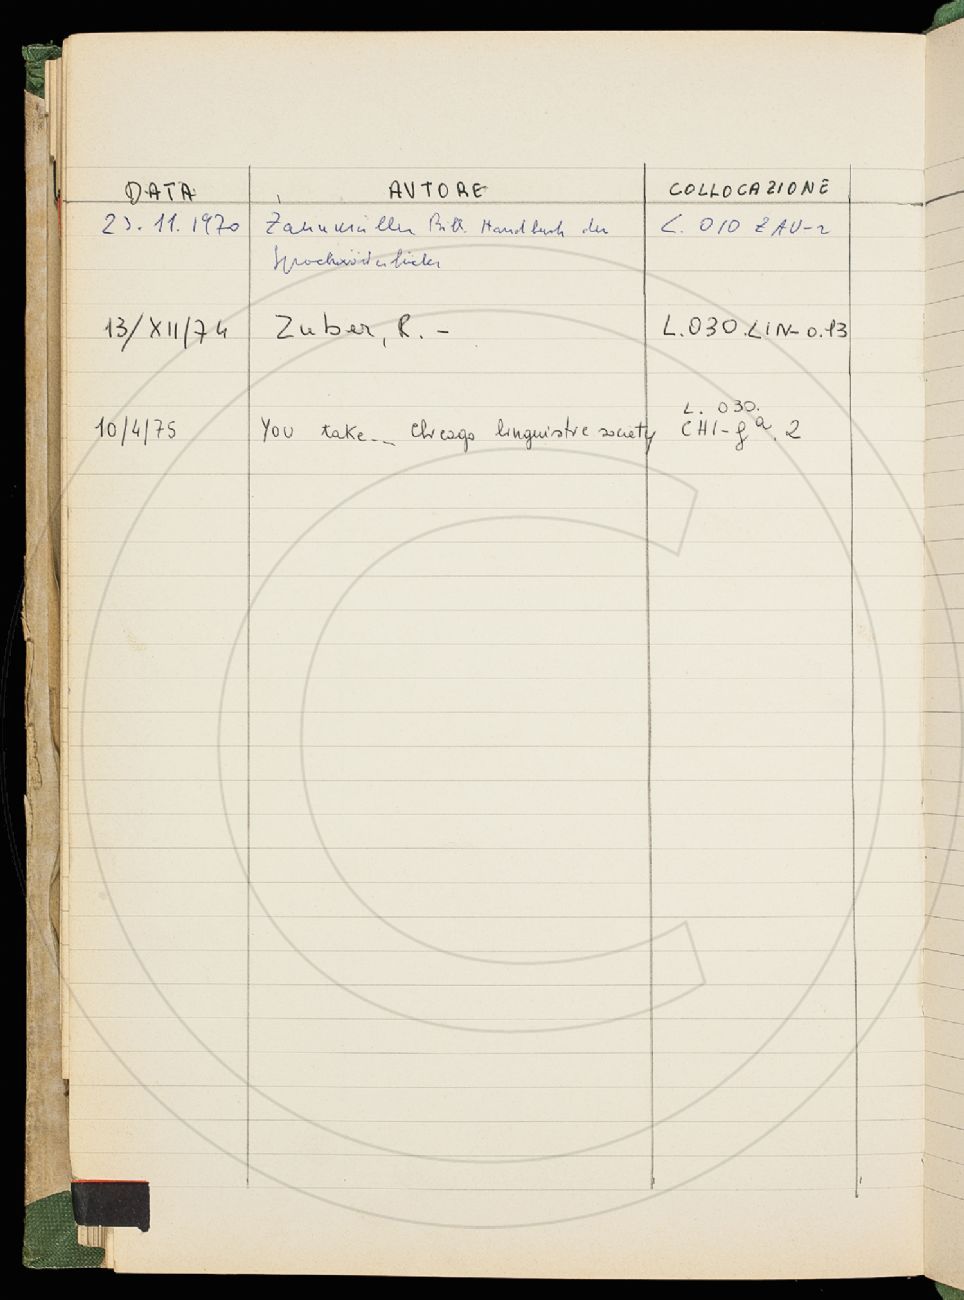 DATA AUTORE COLLOCAZIONE
23. 11. 1970 Zaunmüller Bibl. Handbuch der L. 010 ZAU-2
Sprachwörterbücher
13/XII/74 Zuber, R. – L.030.LIN-0.13
L. 030.
10/4/75 You take__ Chicago linguistic society CHI-ga. 2